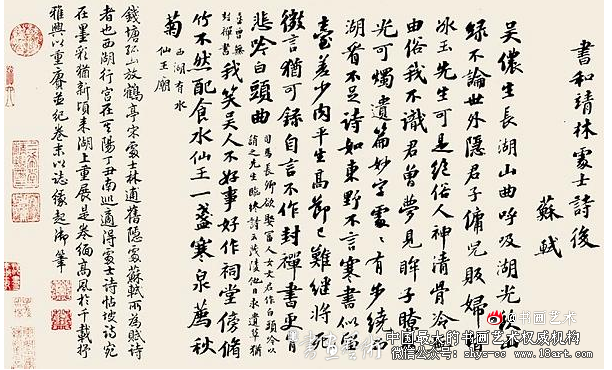 書和靖林處士詩後
蘇軾
吳儂生長湖山曲呼吸湖光飲山
綠不論世外隱君子傭兒販婦皆
冰玉先生可是絕俗人神清骨冷無
由俗我不識君曾夢見眸子瞭然
光可燭遺篇妙字處處有步繞西
湖看不足詩如東野不言寒書似留
臺差少肉平生高節已難繼將死
微言猶可錄自言不作封禪書更肯
悲吟白頭曲
司馬長卿欲娶富人女文君作白頭吟以
誚之先生臨終詩云茂陵他日求遺草猶
喜曾無
封禪書
我笑吳人不好事好作祠堂傍脩
竹不然配食水仙王一盞寒泉薦秋
菊
西湖有水
仙王廟
錢塘孤山放鶴亭宋處士林逋舊隱處蘇軾所為賦詩
者也西湖行宮在其陽丁丑南巡適得處士詩帖坡詩宛
在墨彩猶新頃來湖上重展是卷緬高風於千載抒
雅興以重賡並紀卷末以誌緣起御筆
@书画艺术
中国最大的书画艺术权威机构
微信公众号：shys-cc www.18art.com